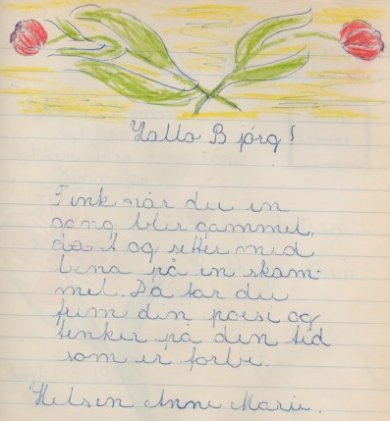 Hallo Bjørg!
Tenk når du en
gang blir gammel,
da t og setter med
bena på en skam-
mel. Då tar du
frem din poesi og
tenker på den tid
som er forbi.
Hilsen Anne Marie.